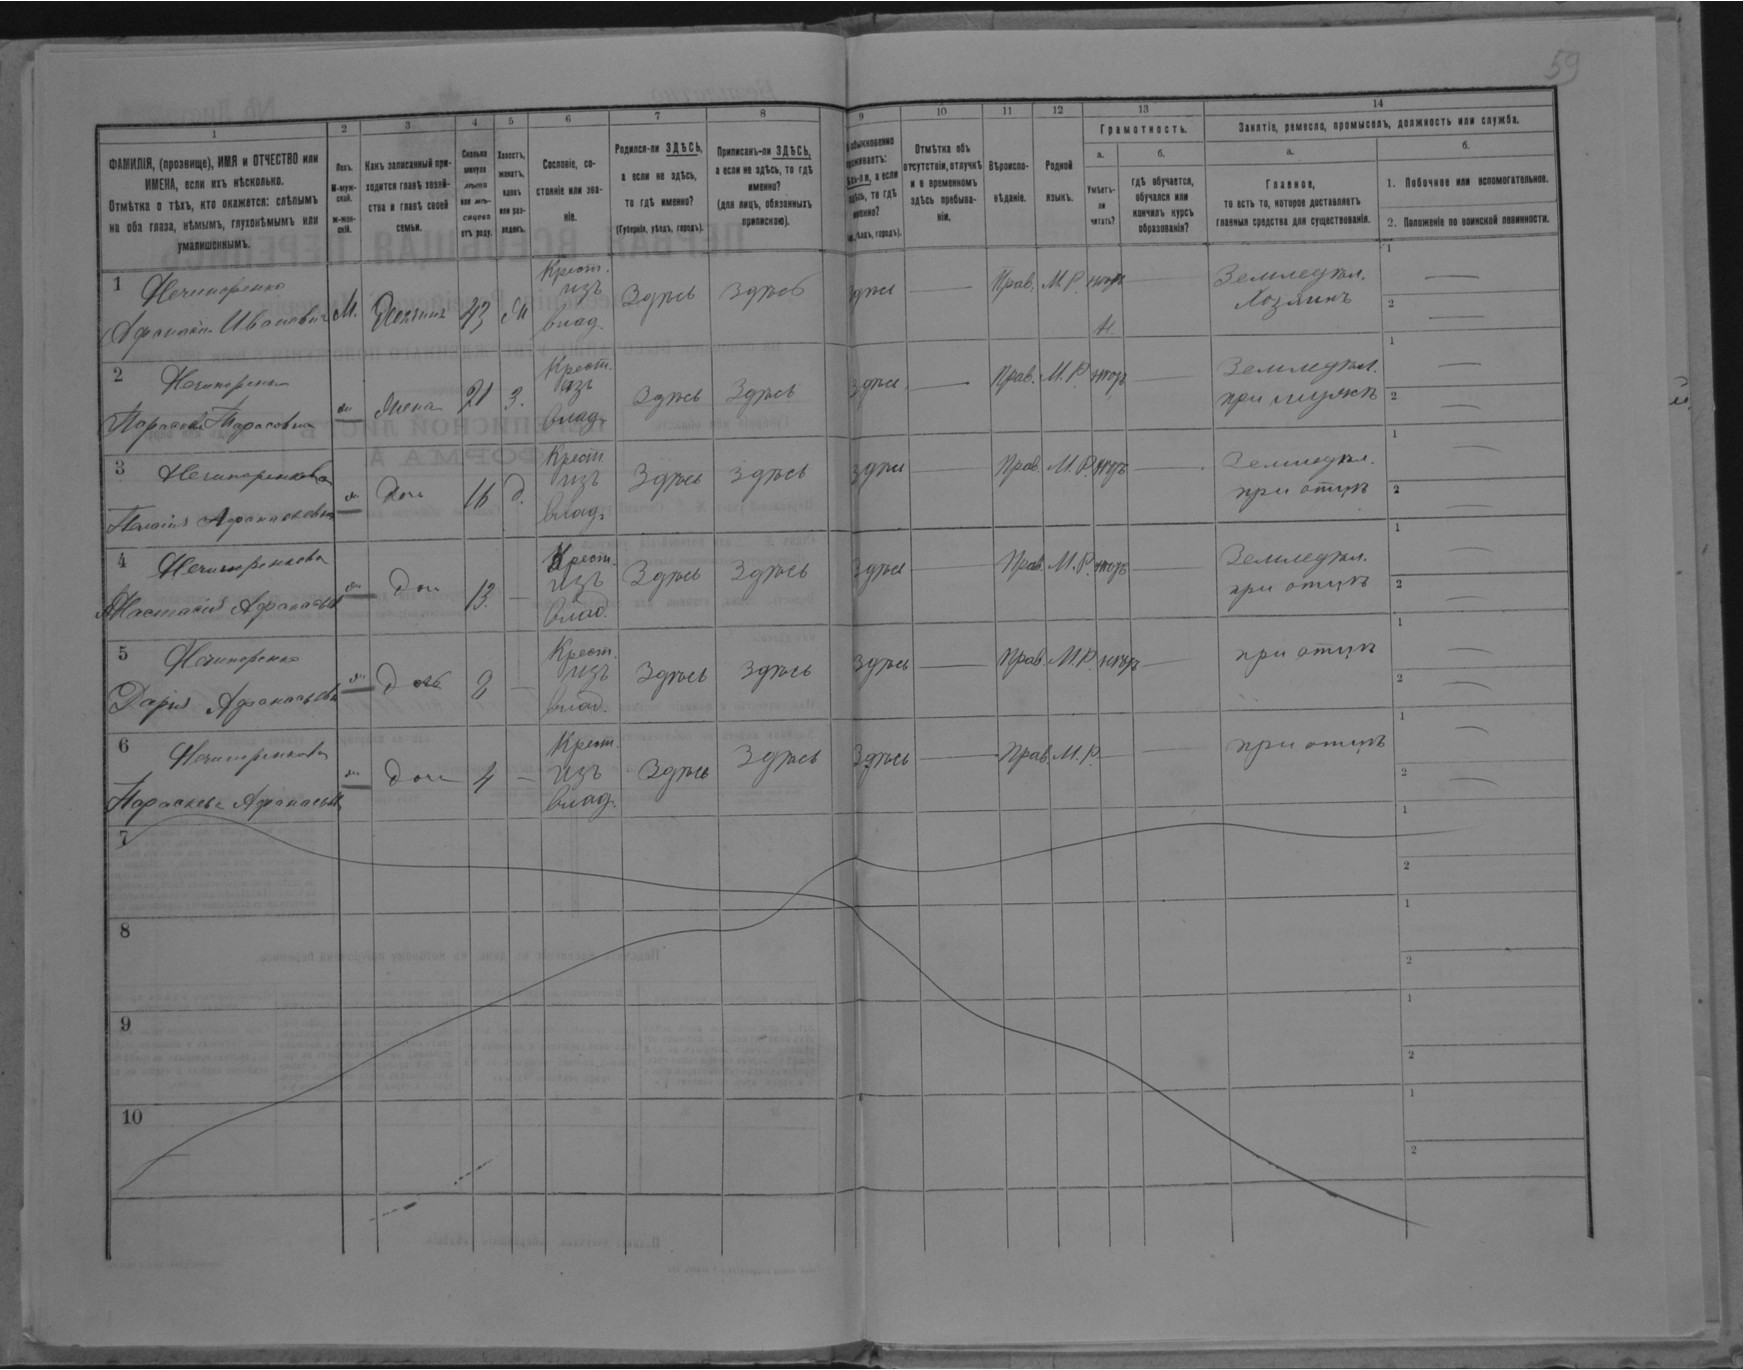 59
1 2 3 4 5 6 7 8 9 10 11 12 13 14
ФАМИЛІЯ, (прозвище), ИМЯ и ОТЧЕСТВО или
ИМЕНА, если ихъ нѣсколько.
Отмѣтка о тѣхъ, кто окажется: слѣпымъ
на оба глаза, нѣмымъ, глухонѣмымъ или
умалишеннымъ.
Полъ.
М-муж-
ской.
Ж-жен-
скій.
Какъ записанный при-
ходится главѣ хозяй-
ства и главѣ своей
семьи.
Сколько
минуло
лѣтъ
или мѣ-
сяцевъ
отъ роду.
Холостъ,
женатъ,
вдовъ
или раз-
веденъ.
Сословіе, со-
стояніе или зва-
ніе.
Родился-ли ЗДѢСЬ,
а если не здѣсь,
то гдѣ именно?
(Губернія, уѣздъ, городъ).
Приписанъ-ли ЗДѢСЬ,
а если не здѣсь, то гдѣ
именно?
(для лицъ, обязанныхъ
припискою).
обыкновенно
проживаетъ:
а если
то гдѣ
именно?
уѣздъ, городъ).
Отмѣтка объ
отсутствіи, отлучкѣ
и о временномъ
здѣсь пребыва-
ніи.
Вѣроиспо-
вѣданіе.
Родной
языкъ.
Грамотность.
а.
Умѣетъ-
ли
читать?
б.
гдѣ обучается,
обучался или
кончилъ курсъ
образованія?
Занятіе, ремесло, промыселъ, должность или служба.
а.
Главное,
то есть то, которое доставляетъ
главныя средства для существованія.
б.
1. Побочное или вспомогательное.
2. Положеніе по воинской повинности.
1 Нечипоренко
Афанасій Ивановичъ М. Хозяинъ 43 Ж
Крест.
изъ
влад.
Здѣсь Здѣсь Здѣсь — Прав. М.Р. нѣтъ —
Земледѣл.
Хозяинъ
1 —
2 —
2 Нечипоренко
Параскева Тарасовна Жена 21 З.
Крест.
изъ
влад.
Здѣсь Здѣсь Здѣсь — Прав. М.Р. нѣтъ —
Земледѣл.
при мужѣ
1 —
2 —
3 Нечипоренкова
Афанасьевна Дочь 16 Д.
Крест.
изъ
влад.
Здѣсь Здѣсь Здѣсь — Прав. М.Р. нѣтъ —
Земледѣл.
при отцѣ
1 —
2 —
4 Нечипоренкова
Анастасія Афанасьев Дочь 13. —
Крест.
изъ
влад.
Здѣсь Здѣсь Здѣсь — Прав. М.Р. нѣтъ —
Земледѣл.
при отцѣ
1 —
2 —
5 Нечипоренко
Дарія Афанасьевн Дочь —
Крест.
изъ
влад.
Здѣсь Здѣсь Здѣсь — Прав. М.Р. нѣтъ —
при отцѣ
1 —
2 —
6 Нечипоренкова
Параскева Афанасьев Дочь 4 —
Крест.
изъ
влад.
Здѣсь Здѣсь Здѣсь — Прав. М.Р. —
при отцѣ
1 —
2 —
7
1
2
8
1
2
9
1
2
10
1
2